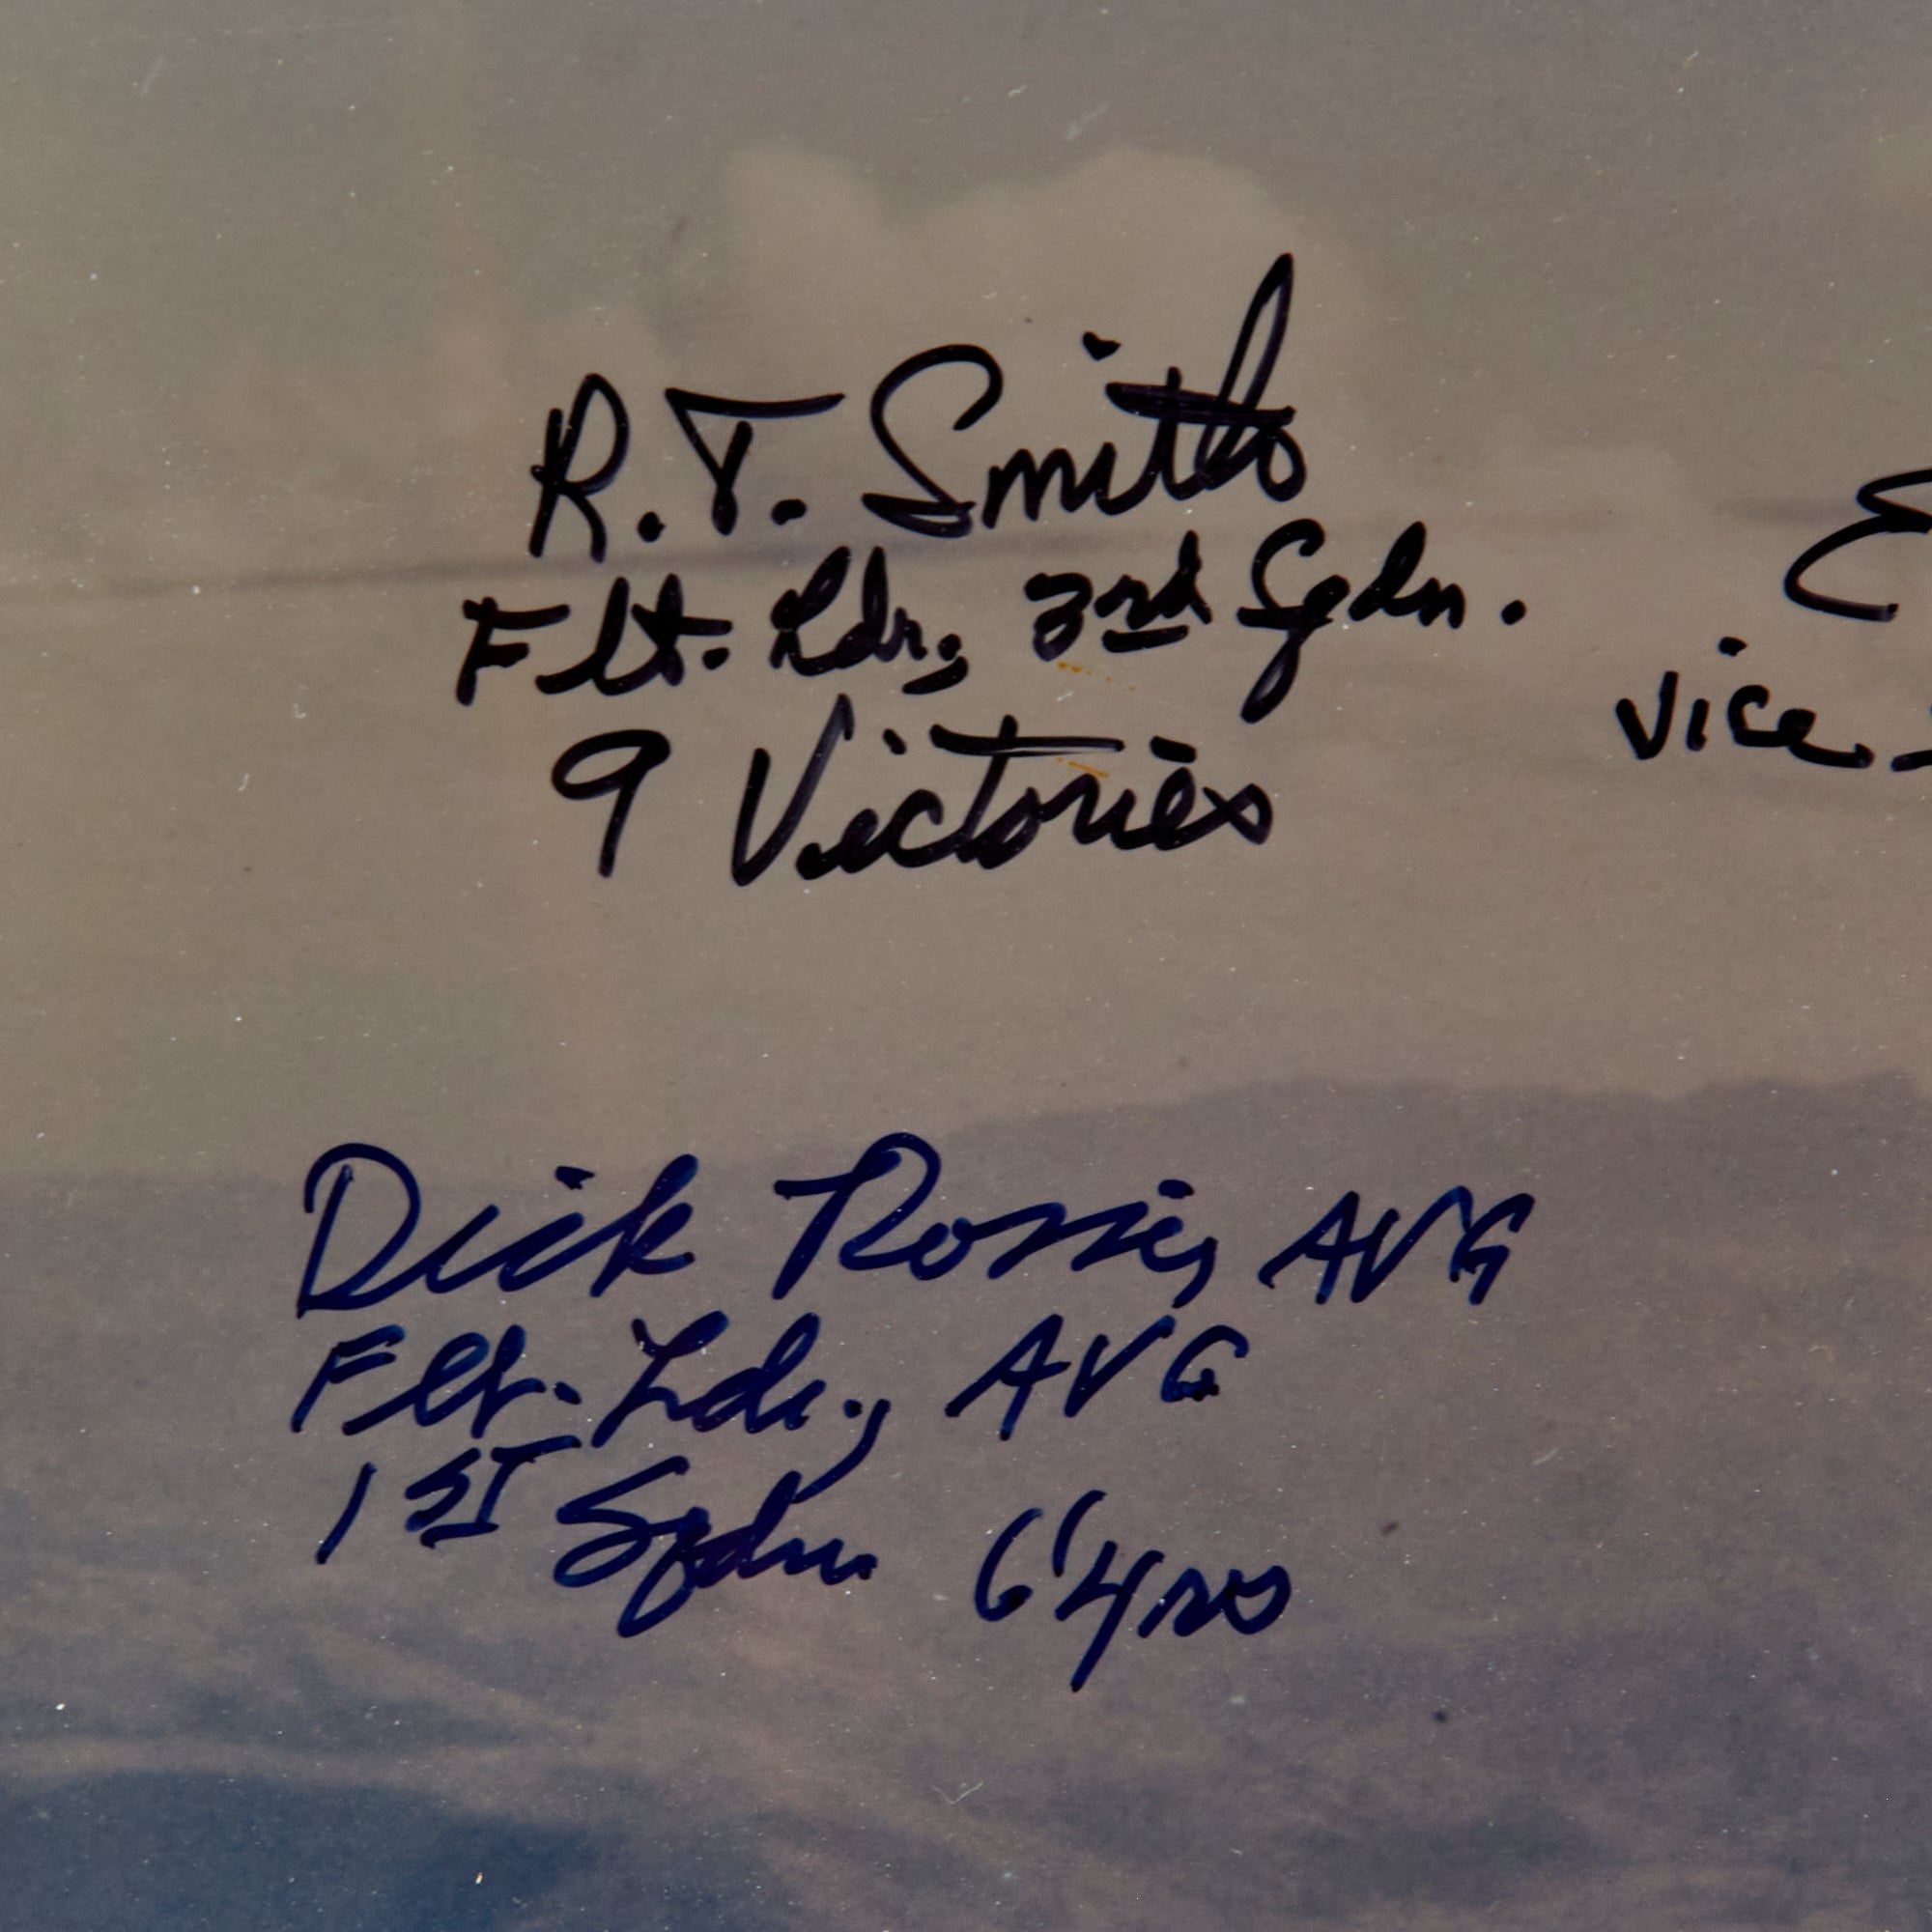 R.T. Smith
Flt. Ldr., 3rd Sqdn.
9 Victories
E
Vice
Dick Rossi, AVG
Flt. Ldr., AVG
1ST Sqdn